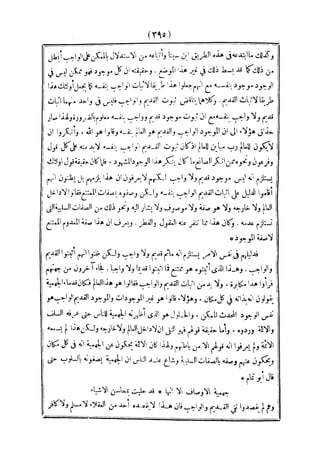 ( ٣٩٥ )
وكذلك ما ابتدعه في هذه الطريق ابن سينا وأتباعه من الاستدلال بالممكن على الواجب أبطل
من ذلك كما قد بسط ذلك في غير هذا الموضع . وحقيقته ان كل موجود فهو ممكن ليس في
الوجود موجود بنفسه مع انهم جعلوا هذا طريقا لاثبات الواجب بنفسه كما يجعل أولئك هذا
طريقا لاثبات القديم . وكلاهما يناقض ثبوت القديم والواجب فليس في واحد منهما اثبات
قديم ولا واجب بنفسه مع ان ثبوت موجود قديم وواجب بنفسه معلوم بالضرورة ولهذا صار
حذاق هؤلاء الى ان الموجود الواجب والقديم هو العالم بنفسه وقالوا هو الله . وأنكروا ان
يكون للعالم رب مباين للعالم اذ كان ثبوت القديم الواجب بنفسه لابد منه على كل قول
وفرعون ونحوه ممن انكر الصانع ما كان ينكر هذا الوجود المشهود . فلما كان حقيقة قول أولئك
يستلزم انه ليس موجود قديم ولا واجب لكنهم لا يعرفون ان هذا يلزمهم بل يظنون انهم
أقاموا الدليل على اثبات القديم الواجب بنفسه ولكن وصفوه بصفات الممتنع فقالوا لا داخل
العالم ولا خارجه ولا هو صفة ولا موصوف ولا يشار اليه ونحو ذلك من الصفات السلبية التي
تستلزم عدمه . وكان هذا مما تنفر عنه العقول والفطر . ويعرف ان هذا صفة المعدوم الممتنع
لا صفة الموجود *
فدليلهم في نفس الامر يستلزم انه ما ثم قديم ولا واجب ولكن ظنوا انهم أثبتوا القديم
والواجب . وهذا الذي أثبتوه هو ممتنع فما أثبتوا قديما ولا واجبا . فجاء آخرون من جهتهم
فرأوا هذا مكابرة . ولا بد من اثبات القديم والواجب فقالوا هو هذا العالم فكان قدماء الجهمية
يقولون انه بذاته في كل مكان . وهؤلاء قالوا هو عين الموجودات والموجود القديم الواجب هو
نفس الوجود المحدث الممكن . والحلول هو الذي أظهرته الجهمية للناس حتى عرفه السلف
والائمة وردوه . وأما حقيقة قولهم فهو النفي ان لا داخل العالم ولا خارجه ولكن هذا لم يسمعه
الائمة ولم يعرفوا انه قولهم الا من باطنهم ولهذا كان الائمة يحكون عن الجهمية انه في كل مكان
ويحكون عنهم وصفه بالصفات السلبية وشاع عند الناس ان الجهمية يصفونه بالسلوب حتى
قال أبو تمام *
جهمية الاوصاف الا انها * قد حليت بمحاسن الاشياء
وهم لم يقصدوا نفي القديم والواجب فان هذا لا يقصده أحد من العقلاء لا مسلم ولا كافر